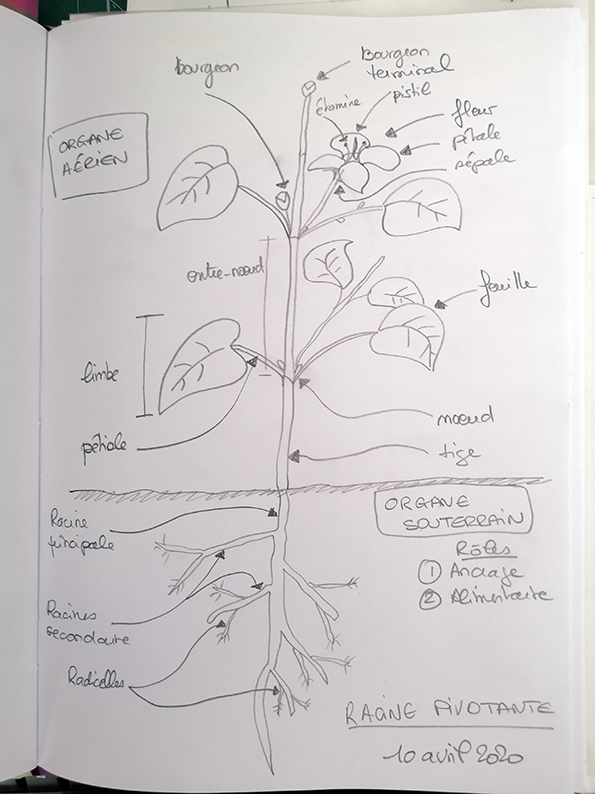 bourgeon
Bourgeon
terminal
étamine
pistil
fleur
pétale
sépale
ORGANE
AÉRIEN
entre-nœud
feuille
limbe
pétiole
nœud
tige
ORGANE
SOUTERRAIN
Racine
principale
Rôles
① Ancrage
② Alimentaire
Racines
secondaire
Radicelles
RACINE PIVOTANTE
10 avril 2020